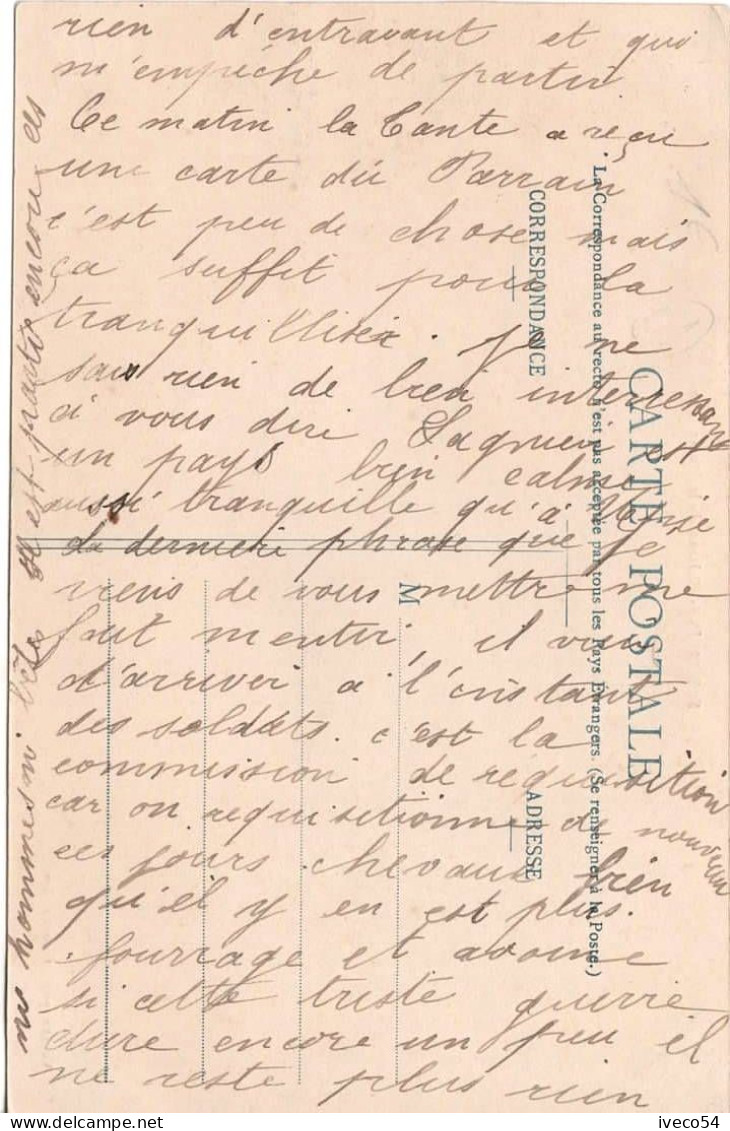 rien d'entravant et qui
m'empêche de partir
Ce matin la Tante a reçu
une carte du Parrain
c'est peu de chose mais
ça suffit pour la
tranquilliser. Je ne
sais rien de bien interressant
à vous dire Lagnieu est
un pays bien calme
aussi tranquille qu'à
La dernière phrase que je
viens de vous mettre me
fait mentir, il vient
d'arriver a l'instant
des soldats. c'est la
commission de requisition
car on requisitionne de nouveau
ces jours chevaux bien
qu'il y en est plus.
fourrage et avoine
si cette triste guerre
dure encore un peu il
ne reste plus rien
Il est parti encore des
CARTE POSTALE
La Correspondance au recto n'est pas acceptée par tous les Pays Etrangers. (Se renseigner à la Poste.)
CORRESPONDANCE
ADRESSE
M
iveco54